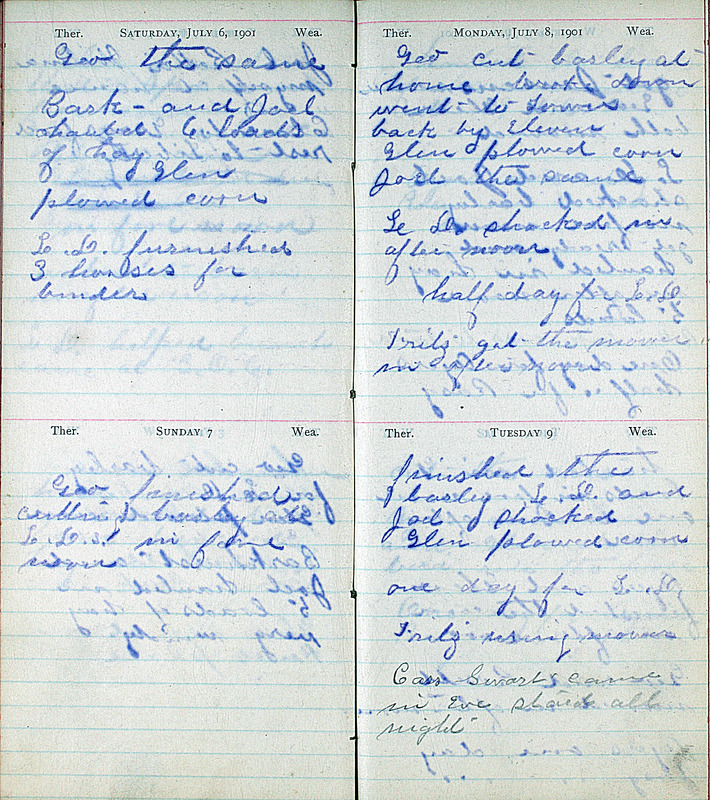 Ther. SATURDAY, JULY 6, 1901 Wea.
Geo the same
Bask - and Joel
hauled 6 loads
of hay
Glen
plowed corn
L. D. furnished
3 horses for
binder
Ther. SUNDAY 7 Wea.
Geo finished
cutting barley
L. D.s' in fore
noon
Ther. MONDAY, JULY 8, 1901 Wea.
Geo cut barley at
home broke down
went to
back by Eleven
Glen plowed corn
Joel the same
L. D. shocked in
after noon
half day for L. D.
Fritz got the mower
in after noon
Ther. TUESDAY 9 Wea.
finished the
barley L. D. and
Joel shocked
Glen plowed corn
one day for L. D.
Fritz using mower
Cass Swart came
in Eve staid all
night